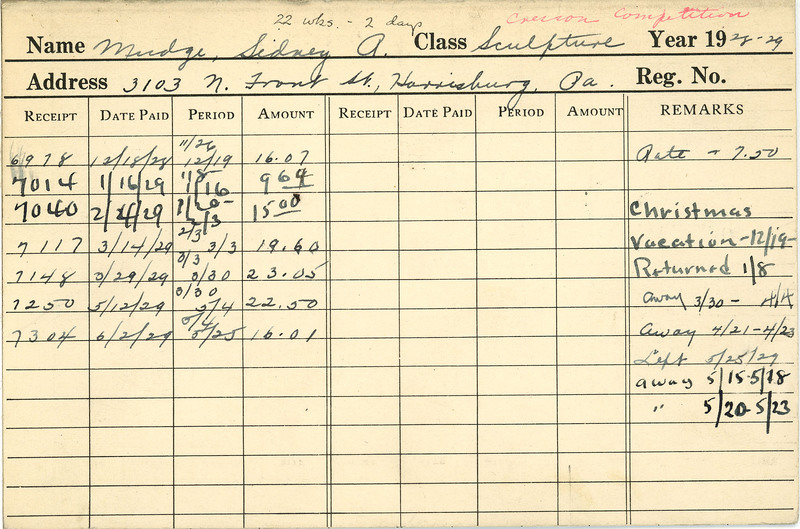 22 wks. - 2 days
Cresson Competition
Name Mudge, Sidney A. Class Sculpture Year 1928-29
Address 3103 N. Front St., Harrisburg, Pa. Reg. No.
RECEIPT DATE PAID PERIOD AMOUNT RECEIPT DATE PAID PERIOD AMOUNT REMARKS
11/26
6978 12/18/28 12/19 16.07 Rate - 7.50
7014 1/16/29 1/8 1/16 9 64
7040 2/4/29 2/3 15 00 Christmas
2/3
7117 3/14/29 3/3 19.60 Vacation - 12/19-
3/3
7148 3/29/29 3/30 23.05 Returned 1/8
3/30
7250 5/12/29 5/4 22.50 Away 3/30 - 4/4
5/4
7304 6/2/29 5/25 16.01 Away 4/21-4/23
Left 5/25/29
away 5/15-5/18
" 5/20-5/23